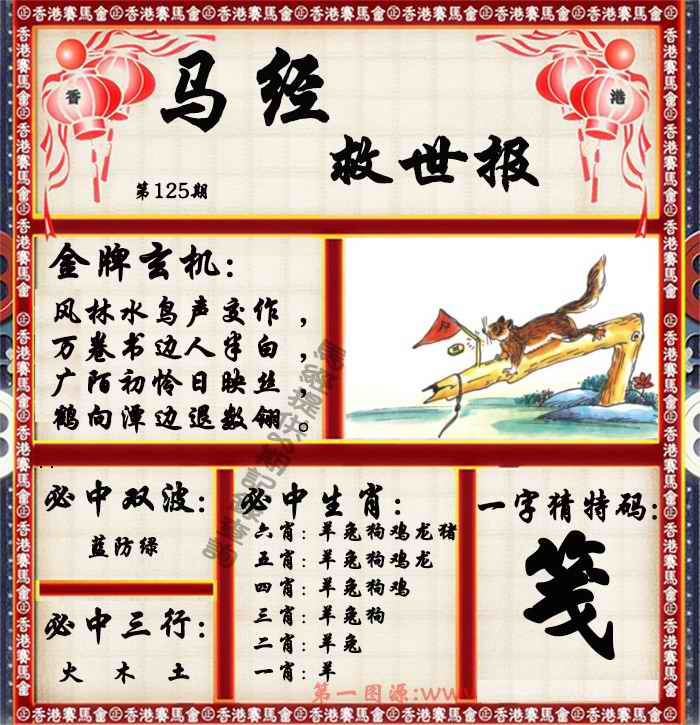 香港賽馬會
香
港
马经
救世报
第125期
金牌玄机:
风林水鸟声交作,
万卷书边人半白,
广陌初怜日映丝,
鹤向潭边退数翎。
必中双波:
蓝防绿
必中三行:
火 木 土
必中生肖:
六肖:羊兔狗鸡龙猪
五肖:羊兔狗鸡龙
四肖:羊兔狗鸡
三肖:羊兔狗
二肖:羊兔
一肖:羊
一字猜特码:
笺
第一图源:www